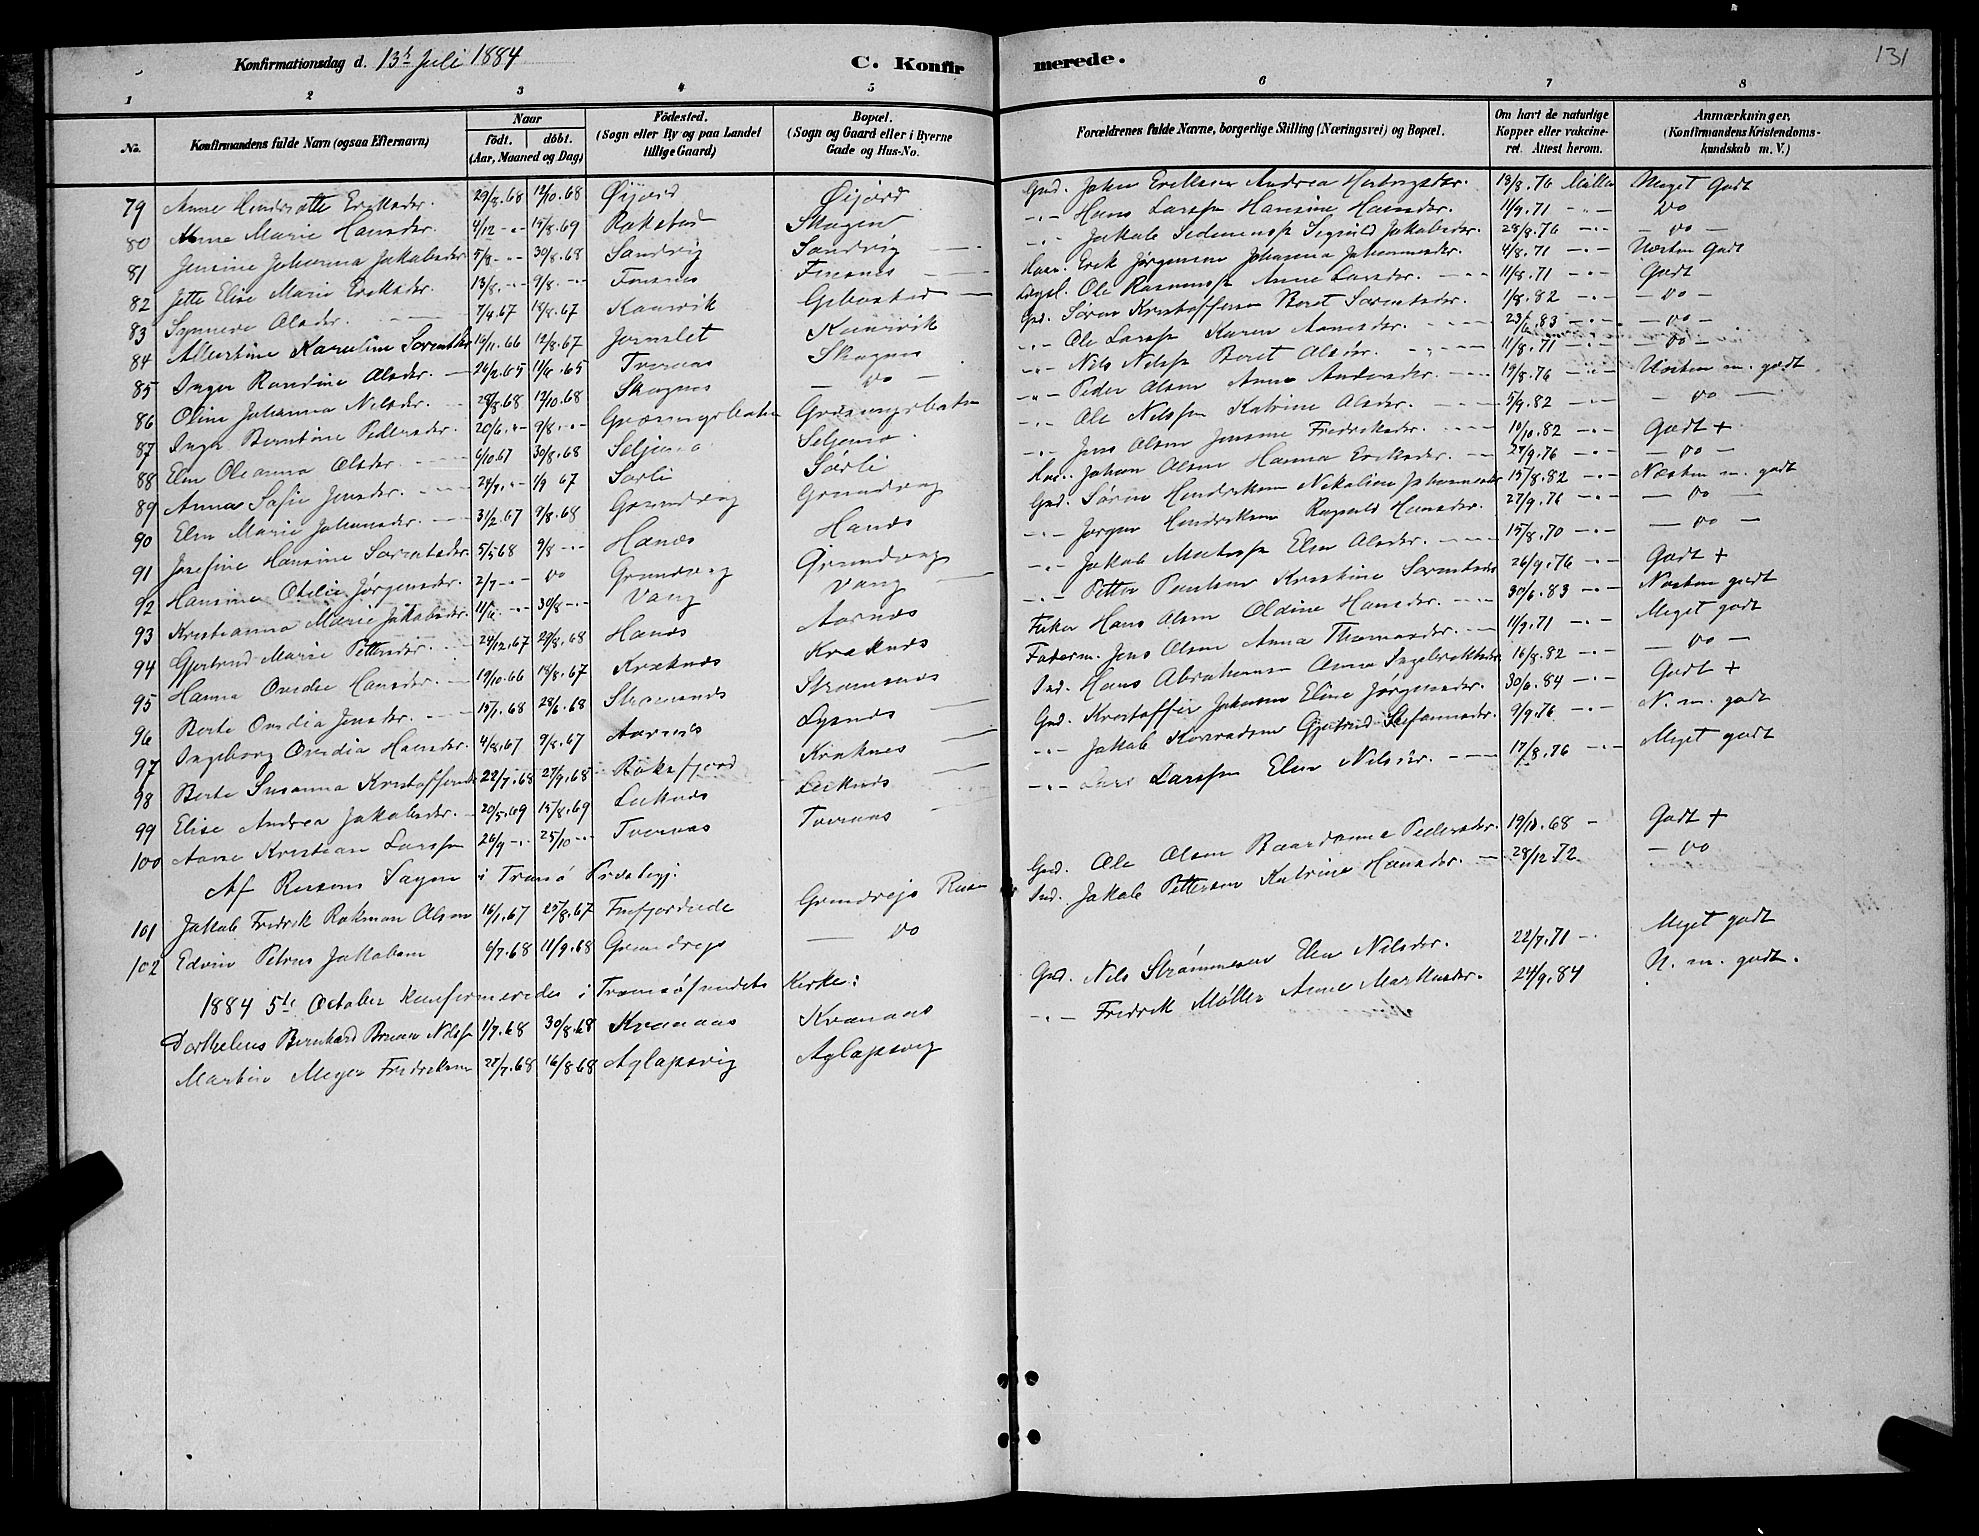 Konfirmationsdag d. 13de Juli 1884 C. Konfirmerede. 131
1 2 3 4 5 6 7 8
No. Konfirmandens fulde Navn (ogsaa Efternavn) Naar født. døbt. (Aar, Maaned og Dag) Fødested. (Sogn eller By og paa Landet tillige Gaard) Bopæl. (Sogn og Gaard eller i Byerne Gade og Hus-No. Forældrenes fulde Navne, borgerlige Stilling (Næringsvei) og Bopæl. Om havt de naturlige Kopper eller vakcineret. Attest herom. Anmærkninger, (Konfirmandens Kristendomskundskab m. V.)
79 Anne Hendrette Eriksdr. 29/8.68 12/10.68 Øijord Øijord Gmd. Johan Eriksen Andrea 13/8.76 Müller Meget Godt
80 Anne Marie Hansdr. 4/12 -"- 15/8.69 Rakstad Skogen -"- Hans Larssen Hansine Hansdr. 11/9.71 -"- Do
81 Jensine Johanna Jakobsdr 5/8 -"- 30/8.68 Sandvig Sandvig -"- Jakob Sigrild Jakobsdr. 28/8.76 -"- - Do -
82 Jette Elise Marie Eriksdr. 13/8 -"- 9/8 -"- Finsnes Finsnes Erik Jørgensen Johanna Johannesdr. 4/8.71 -"- Næsten Godt
83 Synnøve Olsdr. 7/4.67 18/8.67 Kaarvik Gebostad Ole Rasmuss. Anne Larsdr. 11/8.71 -"- Godt
84 Albertine Karoline Sørensdr 16/11.66 12/8.67 Jernslet Kaarvik Gmd. Søren Kristoffersen Beret Sørensdr. 1/8.82 -"- - Do -
85 Inger Randine Olsdr. 26/2.65 11/6.65 Tvernas Skognes -"- Ole Larssen Karen Arnesdr. 23/6.83 -"- - Do -
86 Oline Johanna Nilsdr. 28/8.68 12/10.68 Skognes - Do - -"- Nils Nilssen Beret Olsdr. 11/8.71 -"- Do -
87 Inger Berntine Pedersdr. 20/6 -"- 9/8 -"- Græsningsbaken Græsningsbaken -"- Peder Olsen Anne Andersdr. 19/8.76 -"- Næsten m. godt
88 Elen Oleanna Olsdr. 6/10.67 30/8.68 Seljenes Seljenes -"- Ole Nilssen Katrine Olsdr. 5/9.82 -"- - Do -
89 Anna Sofie Jensdr. 24/7 -"- 1/9 67 Sørli Sørli -"- Jens Olsen Jensine Fredriksdr. 10/10.82 -"- Godt +
90 Elen Marie Johansdr. 3/2.67 9/8.68 Grundvag Grundvag Johan Olsen Hanna Eriksdr. 27/9.76 -"- - Do -
91 Josefine Hansine Sørensdr. 5/5 68 9/8 -"- Hanæs Hanæs Gmd. Søren Hendriksen Nekoline Johannesdr 15/8.82 -"- Næsten m. godt
92 Hansine Otelie Jørgensdr. 2/7 -"- Do Grundvag Grundvag -"- Jørgen Hendriksen Ragnild Hansdr. 27/9.76 -"- - Do -
93 Kristianna Marie Jakobsdr 11/6 -"- 30/8 -"- Vang Vang -"- Jakob Elen Olsdr. 15/8.70 -"- - Do -
94 Gjertrud Marie Pettersdr. 24/12.67 29/8.68 Hanæs Aarnæs -"- Petter Kristine Sørensdr 26/9.76 -"- Godt +
95 Hanna Ovidie Hansdr. 19/10.66 18/8.67 Kraknæs Kraknæs Fisker Hans Olsen Oldine Hansdr. 30/6.83 -"- Næsten godt
96 Berte Ovidia Jensdr. 15/1.68 28/6.68 Strømsnæs Strømsnæs Jens Olsen Anna Thomasdr. 11/9.71 -"- Meget godt
97 Ingeborg Ovidia Hansdr. 4/8.67 9/8.67 Aarnæs Lysnæs Ind. Hans Abrahamsen Anna Ingebriktsdr 16/8.82 -"- - Do -
98 Berte Susanna Kristoffersdr 22/7.68 27/9.68 Rakefjord Kraknes Gmd. Kristoffer Johansen Eline Jørgensdr. 30/6.84 -"- Godt +
99 Elise Andrea Jakobsdr. 20/5.69 15/8.69 Leiknæs Leiknæs -"- Jakob Konradsen Gjertrud Steffensdr. 9/9.76 -"- N. m. godt
100 Anne Kristian Larssen 26/9 -"- 25/10 -"- Tvernas Tvernas -"- Lars Larssen Elen Nilsdr. 17/8.76 -"- Meget godt
Af Rosons Sogn i Tromsø Præstegj.
101 Jakob Fredrik Rokman Olsen 16/1.67 25/8.67 Finfjordeide Grundvejs Gmd. Ole Olsen Baardanna Pedersdr. 19/10.68 - Godt +
102 Edvin Petrus Jakobsen 6/7.68 11/9.68 Grundvejs - Do Ind. Jakob Pettersen Katrine Hansdr. 28/12.72 - Do
1884 5te October konfirmeredes i Tromsøsundets Kirke:
Dorthelius Bernhard Bruun Nilssen 1/7.68 30/8.68 Kvænaas Kvænaas Gmd. Nils Strømmesen Elen Nilsdr. 22/7.71 - Meget godt
Martin Meyer Fredriksen 27/7.68 16/8 68 Aglapsvig Aglapsvig -"- Fredrik Møller Anne Markusdr. 24/9.84 N. m. godt.